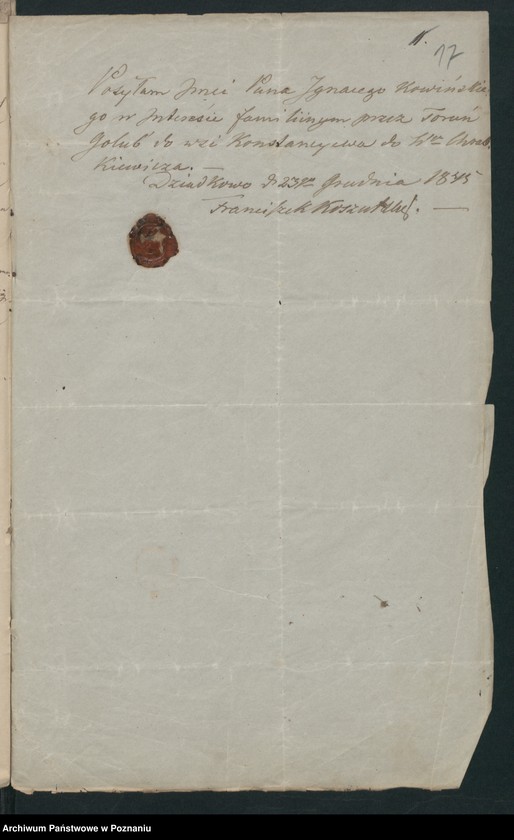 11.
17
Posyłam Jmci Pana Ignacego Nowińskie
go w Interesie familiinym przez Toruń
Golub do wsi Konstancyewa do Wgo Chrab
kiewicza. —
Dziadkowo d. 23go Grudnia 1845
Franciszek Koszutski. —
Archiwum Państwowe w Poznaniu